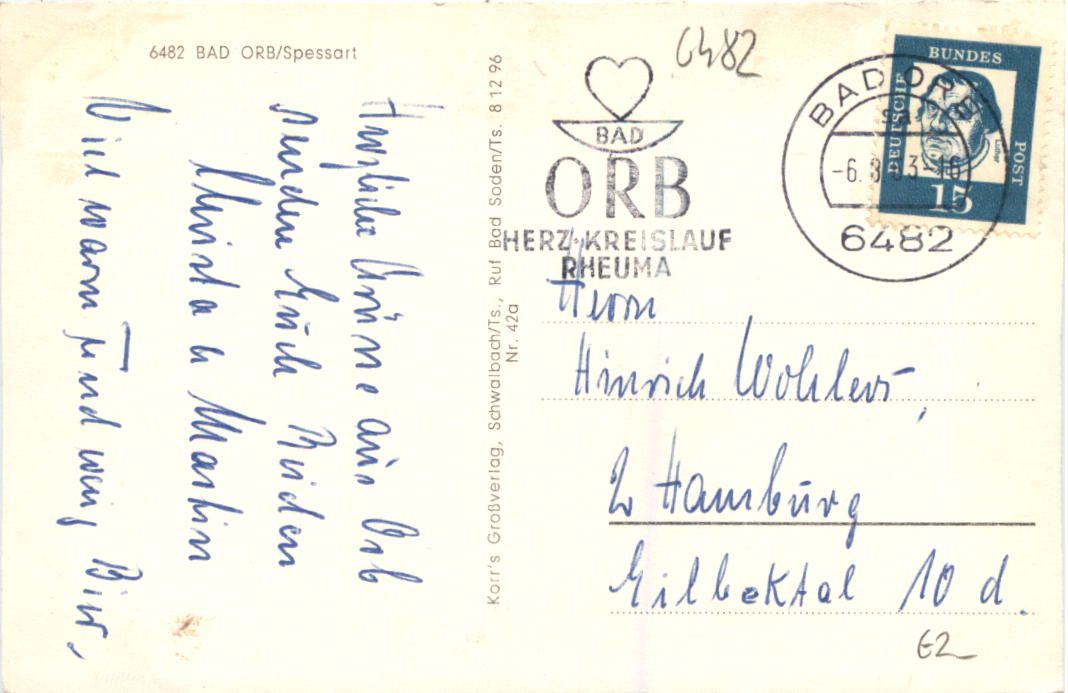 6482 BAD ORB/Spessart
Herzliche Grüsse aus Orb
senden Euch Beiden
Christa u Martin
Viel warm und wenig Bier,
Korr's Großverlag, Schwalbach/Ts., Ruf Bad Soden/Ts. 8 12 96
Nr. 42a
6482
BAD
ORB
HERZ·KREISLAUF
RHEUMA
BAD ORB
-6.8.63-16
6482
DEUTSCHE
BUNDES
POST
Luther
15
Herrn
Hinrich Wohlers,
2 Hamburg
Eilbektal 10 d.
€2